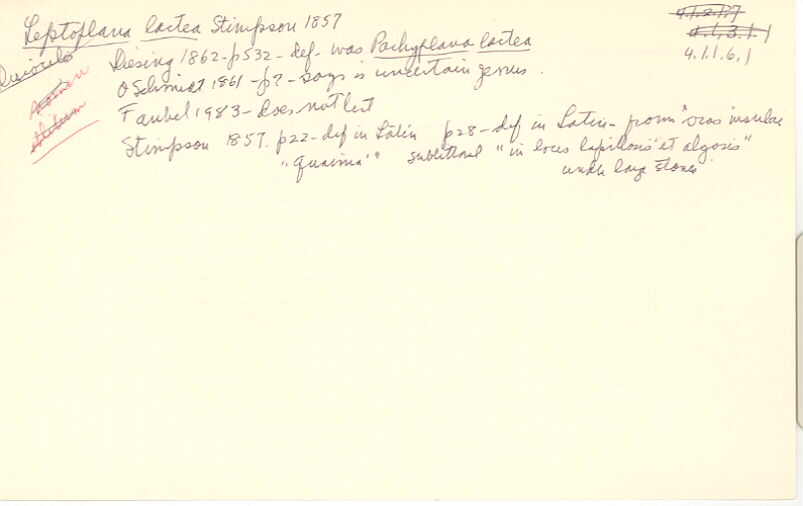 Leptoplana lactea Stimpson 1857
4.1.2.1?
4.1.3.1.1
4.1.1.6.1
Diesing 1862-p532-def. was Pachyplana lactea
O Schmidt 1861-p?-says is uncertain genus.
Faubel 1983-does not list
Stimpson 1857. p22-def in Latin p28-def in Latin-from "oras insulae
"Ousima"" sublittoral "in locis lapillosis" et algosis"
under large stones